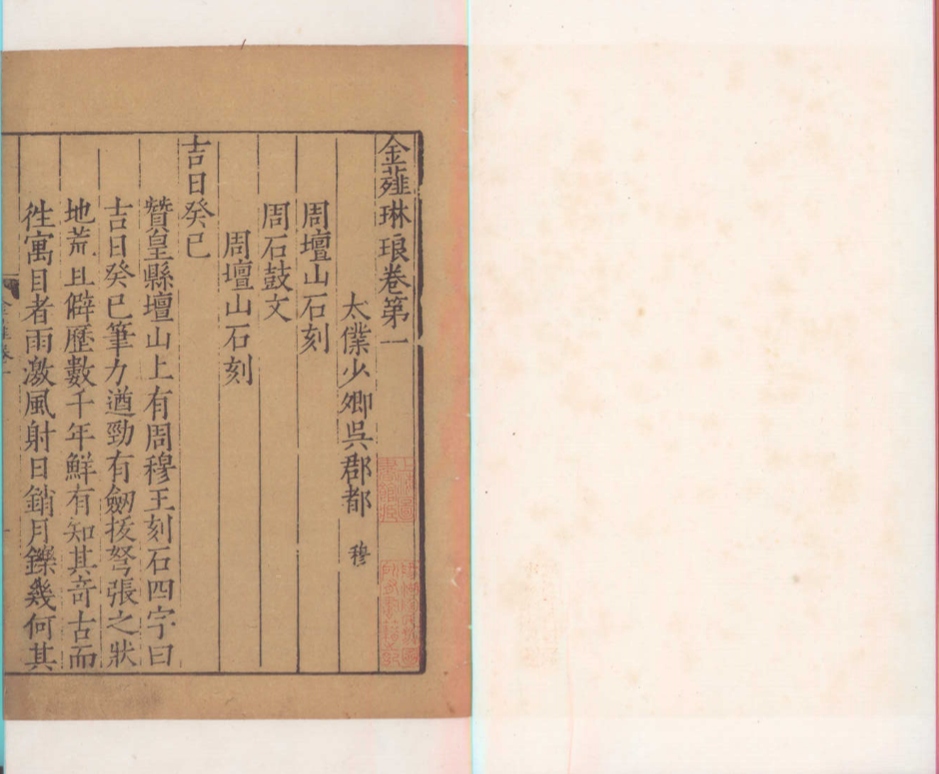 金薤琳琅卷第一
太僕少卿吳郡都穆
周壇山石刻
周石鼓文
周壇山石刻
吉日癸巳
贊皇縣壇山上有周穆王刻石四字曰
吉日癸巳筆力遒勁有劒拔弩張之狀
地荒且僻歷數千年鮮有知其奇古而
徃寓目者雨激風射日銷月鑠幾何其